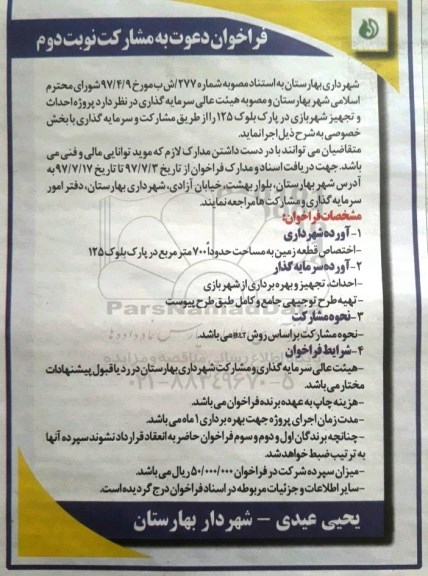 فراخوان دعوت به مشارکت نوبت دوم
شهرداری بهارستان به استناد مصوبه شماره ۲۷۷/ش ب مورخ ۹۷/۴/۹ شورای محترم
اسلامی شهر بهارستان و مصوبه هیئت عالی سرمایه گذاری در نظر دارد پروژه احداث
و تجهیز شهربازی در پارک بلوک ۱۲۵ را از طریق مشارکت و سرمایه گذاری با بخش
خصوصی به شرح ذیل اجرا نماید.
متقاضیان می توانند با در دست داشتن مدارک لازم که موید توانایی مالی و فنی می
باشد. جهت دریافت اسناد و مدارک فراخوان از تاریخ ۹۷/۷/۳ تا تاریخ ۹۷/۷/۱۷ به
آدرس شهر بهارستان، بلوار بهشت، خیابان آزادی، شهرداری بهارستان، دفتر امور
سرمایه گذاری و مشارکت ها مراجعه نمایند.
مشخصات فراخوان:
۱-آورده شهرداری
-اختصاص قطعه زمین به مساحت حدوداً ۷۰۰ متر مربع در پارک بلوک ۱۲۵
۲-آورده سرمایه گذار
-احداث، تجهیز و بهره برداری از شهربازی
-تهیه طرح توجیهی جامع و کامل طبق طرح پیوست
۳-نحوه مشارکت
-نحوه مشارکت بر اساس روش می باشد.
۴-شرایط فراخوان
-هیئت عالی سرمایه گذاری و مشارکت شهرداری بهارستان در رد یا قبول پیشنهادات
مختار می باشد.
-هزینه چاپ به عهده برنده فراخوان می باشد.
-مدت زمان اجرای پروژه جهت بهره برداری ۱ ماه می باشد.
-چنانچه برندگان اول و دوم و سوم فراخوان حاضر به انعقاد قرارداد نشوند سپرده آنها
به ترتیب ضبط خواهد شد.
-میزان سپرده شرکت در فراخوان ۵۰/۰۰۰/۰۰۰ ریال می باشد.
-سایر اطلاعات و جزئیات مربوطه در اسناد فراخوان درج گردیده است.
یحیی عیدی - شهردار بهارستان
ParsNamadData
۰۲۱-۸۸۳۴۹۶۷۰-۵